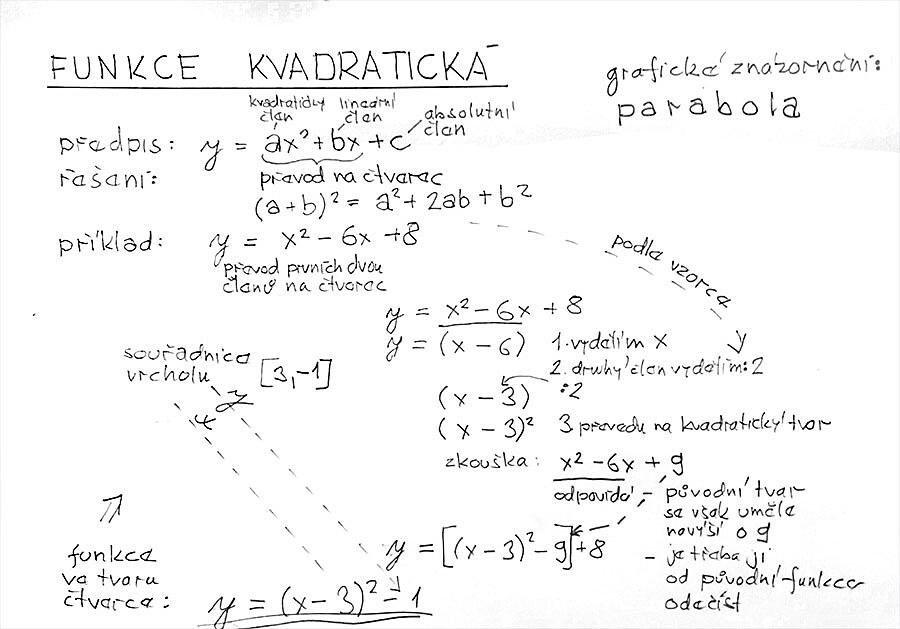 FUNKCE KVADRATICKÁ
grafické znázornění:
parabola
kvadratický člen
lineární člen
absolutní člen
předpis: y = ax² + bx + c
řešení: převod na čtverec
(a+b)² = a² + 2ab + b²
příklad: y = x² - 6x + 8
převod prvních dvou
členů na čtverec
podle vzorce
y = x² - 6x + 8
y = (x - 6) 1. vydělím x
2. druhý člen vydělím :2
(x - 3) :2
(x - 3)² 3. převedu na kvadratický tvar
zkouška: x² - 6x + 9
odpovídá
- původní tvar
se však uměle
navýší o 9
- je třeba ji
od původní funkce
odečíst
y = [(x - 3)² - 9] + 8
souřadnice
vrcholu [3,-1]
x y
funkce
ve tvaru
čtverce: y = (x - 3)² - 1